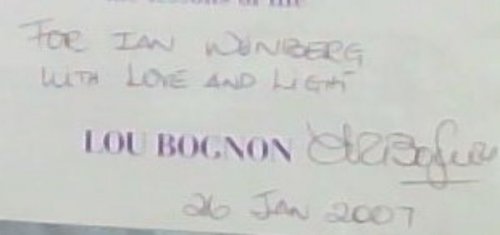 FOR IAN WEINBERG
WITH LOVE AND LIGHT
LOU BOGNON
26 JAN 2007